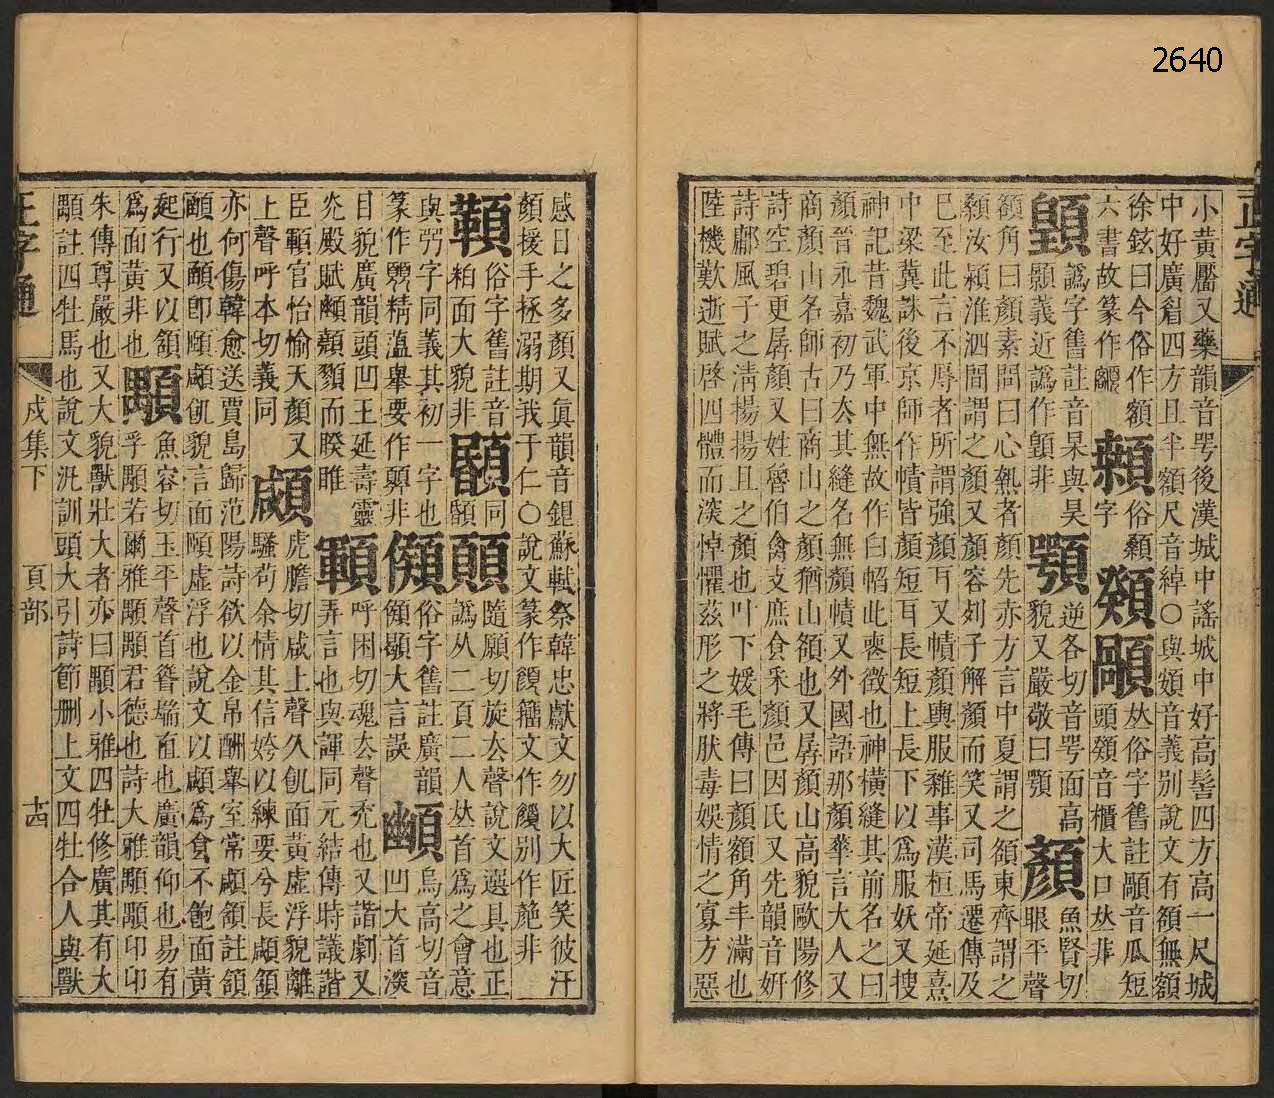 2640
小黃黶又藥韻音咢後漢城中謠城中好高髻四方高一尺城
中好廣眉四方且半額尺音綽○與頟音義別說文有頟無額
徐鉉曰今俗作額
六書故篆作
俗
字
𠀤俗字舊註顝音瓜短
頭頯音櫃大口𠀤非
譌字舊註音杲與昊
顥義近譌作顗非
顎
逆各切音咢面高
貌又嚴敬曰顎
顏
魚賢切
眼平聲
頟角曰顏素問曰心熱者顏先赤方言中夏謂之頟東齊謂之
顙汝潁淮泗間謂之顏又顏容列子解顏而笑又司馬遷傳及
巳至此言不辱者所謂強顏耳又幘顏輿服雜事漢桓帝延熹
中梁冀誅後京師作幘皆顏短耳長短上長下以爲服妖又搜
神記昔魏武軍中無故作白帢此喪徵也神橫縫其前名之曰
顏晉永嘉初乃去其縫名無顏幘又外國語那顏華言大人又
商顏山名師古曰商山之顏猶山領也又孱顏山高貌歐陽修
詩空碧更孱顏又姓魯伯禽支庶食采顏邑因氏又先韻音妍
詩鄘風子之淸揚揚且之顏也叶下媛毛傳曰顏額角丰滿也
陸機歎逝賦啓四體而深悼懼茲形之將肰毒娛情之寡方惡
感目之多顏又眞韻音銀蘇軾祭韓忠獻文勿以大匠笑彼汗
顏援手拯溺期我于仁○說文篆作顏籀文作別作非
俗字舊註音
粕面大貌非
同
額
顚
隨願切旋去聲說文選具也正
譌从二頁二人𠀤首爲之會意
與㢲字同義其初一字也
篆作精薀舉要作非
俗字舊註廣韻
頟顤大言誤
烏高切音
凹大首深
目貌廣韻頭凹王延壽靈
光殿賦顤顟而睽睢
顐
呼困切魂去聲禿也又諧劇又
弄言也與諢同元結傳時議諧
臣顐官怡愉天顏又
上聲呼本切義同
顑
虎膽切咸上聲久飢面黃虛浮貌離
騷苟余情其信姱以練要兮長顑頷
亦何傷韓愈送賈島歸范陽詩欲以金帛酬舉室常顑頷註頷
頤也頤卽頤顑飢貌言面頤虛浮也說文以顑爲食不飽面黃
起行又以頷
爲面黃非也
顒
魚容切玉平聲首昝耑直也廣韻仰也易有
孚顒若爾雅顒顒君德也詩大雅顒顒卬卬
朱傳尊嚴也又大貌獸壯大者亦曰顒小雅四牡修廣其有大
顒註四牡馬也說文汎訓頭大引詩節刪上文四牡合人與獸
正字通
戌集下
頁部
十四
正字通